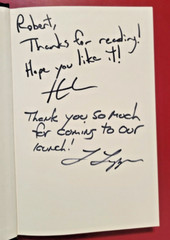 Robert,
Thanks for reading!
Hope you like it!
Thank you so much
for coming to our
launch!